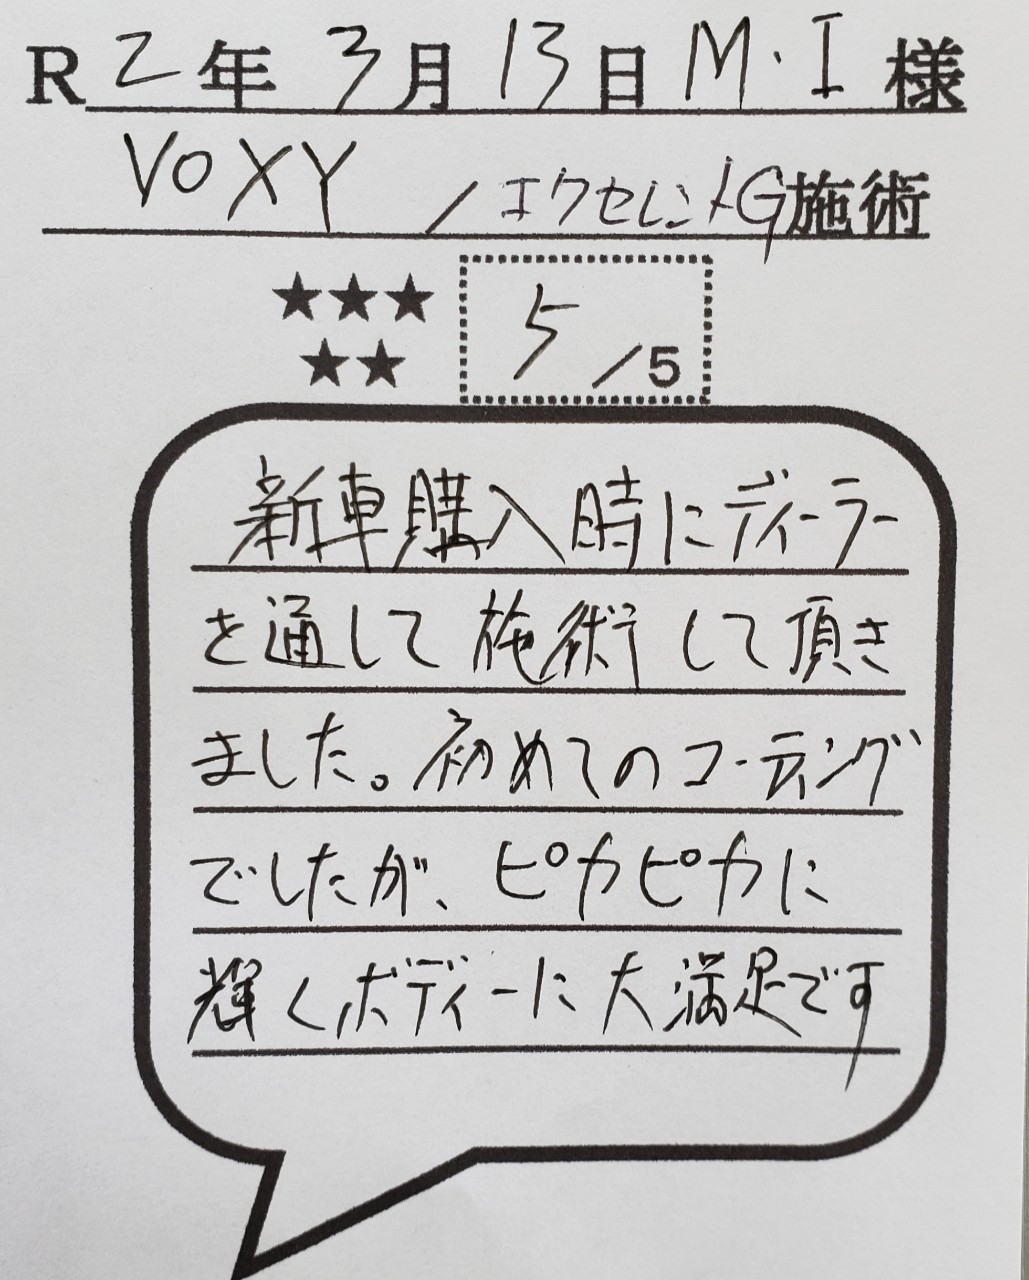 R2年3月13日M・I様
VOXY/エクセレントG施術
★★★
★★
5/5
新車購入時にディーラー
を通して施術して頂き
ました。初めてのコーティング
でしたが、ピカピカに
輝くボディーに大満足です